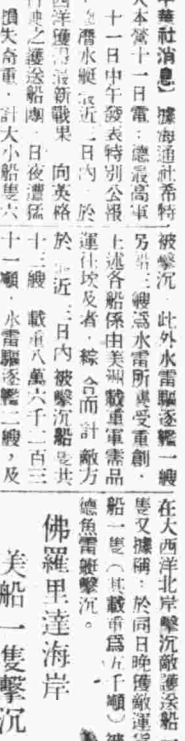 華社消息）據海通社希特
大本營十一日電：德最高軍
十一日中午發表特別公報
潛水艇最近三日內，於
西洋獲得最新戰果　向英格
之護送船團　日夜遭猛
損失奇重，計大小船隻六
被擊沉　此外水雷驅逐艦一艘
另船三艘為水雷所轟受重創，
上述各船係由美洲載重軍需品
運往埃及者，綜合而計敵方
於最近三日內被擊沉船隻共
十三艘　載重八萬六千一百三
十一噸，水雷驅逐艦二艘，及
在大西洋北岸擊沉敵護送船一
隻又據稱：於同日晚獲敵運
船一隻（其載重為五千噸）被
德魚雷艇擊沉。
佛羅里達海岸
美船一隻擊沉